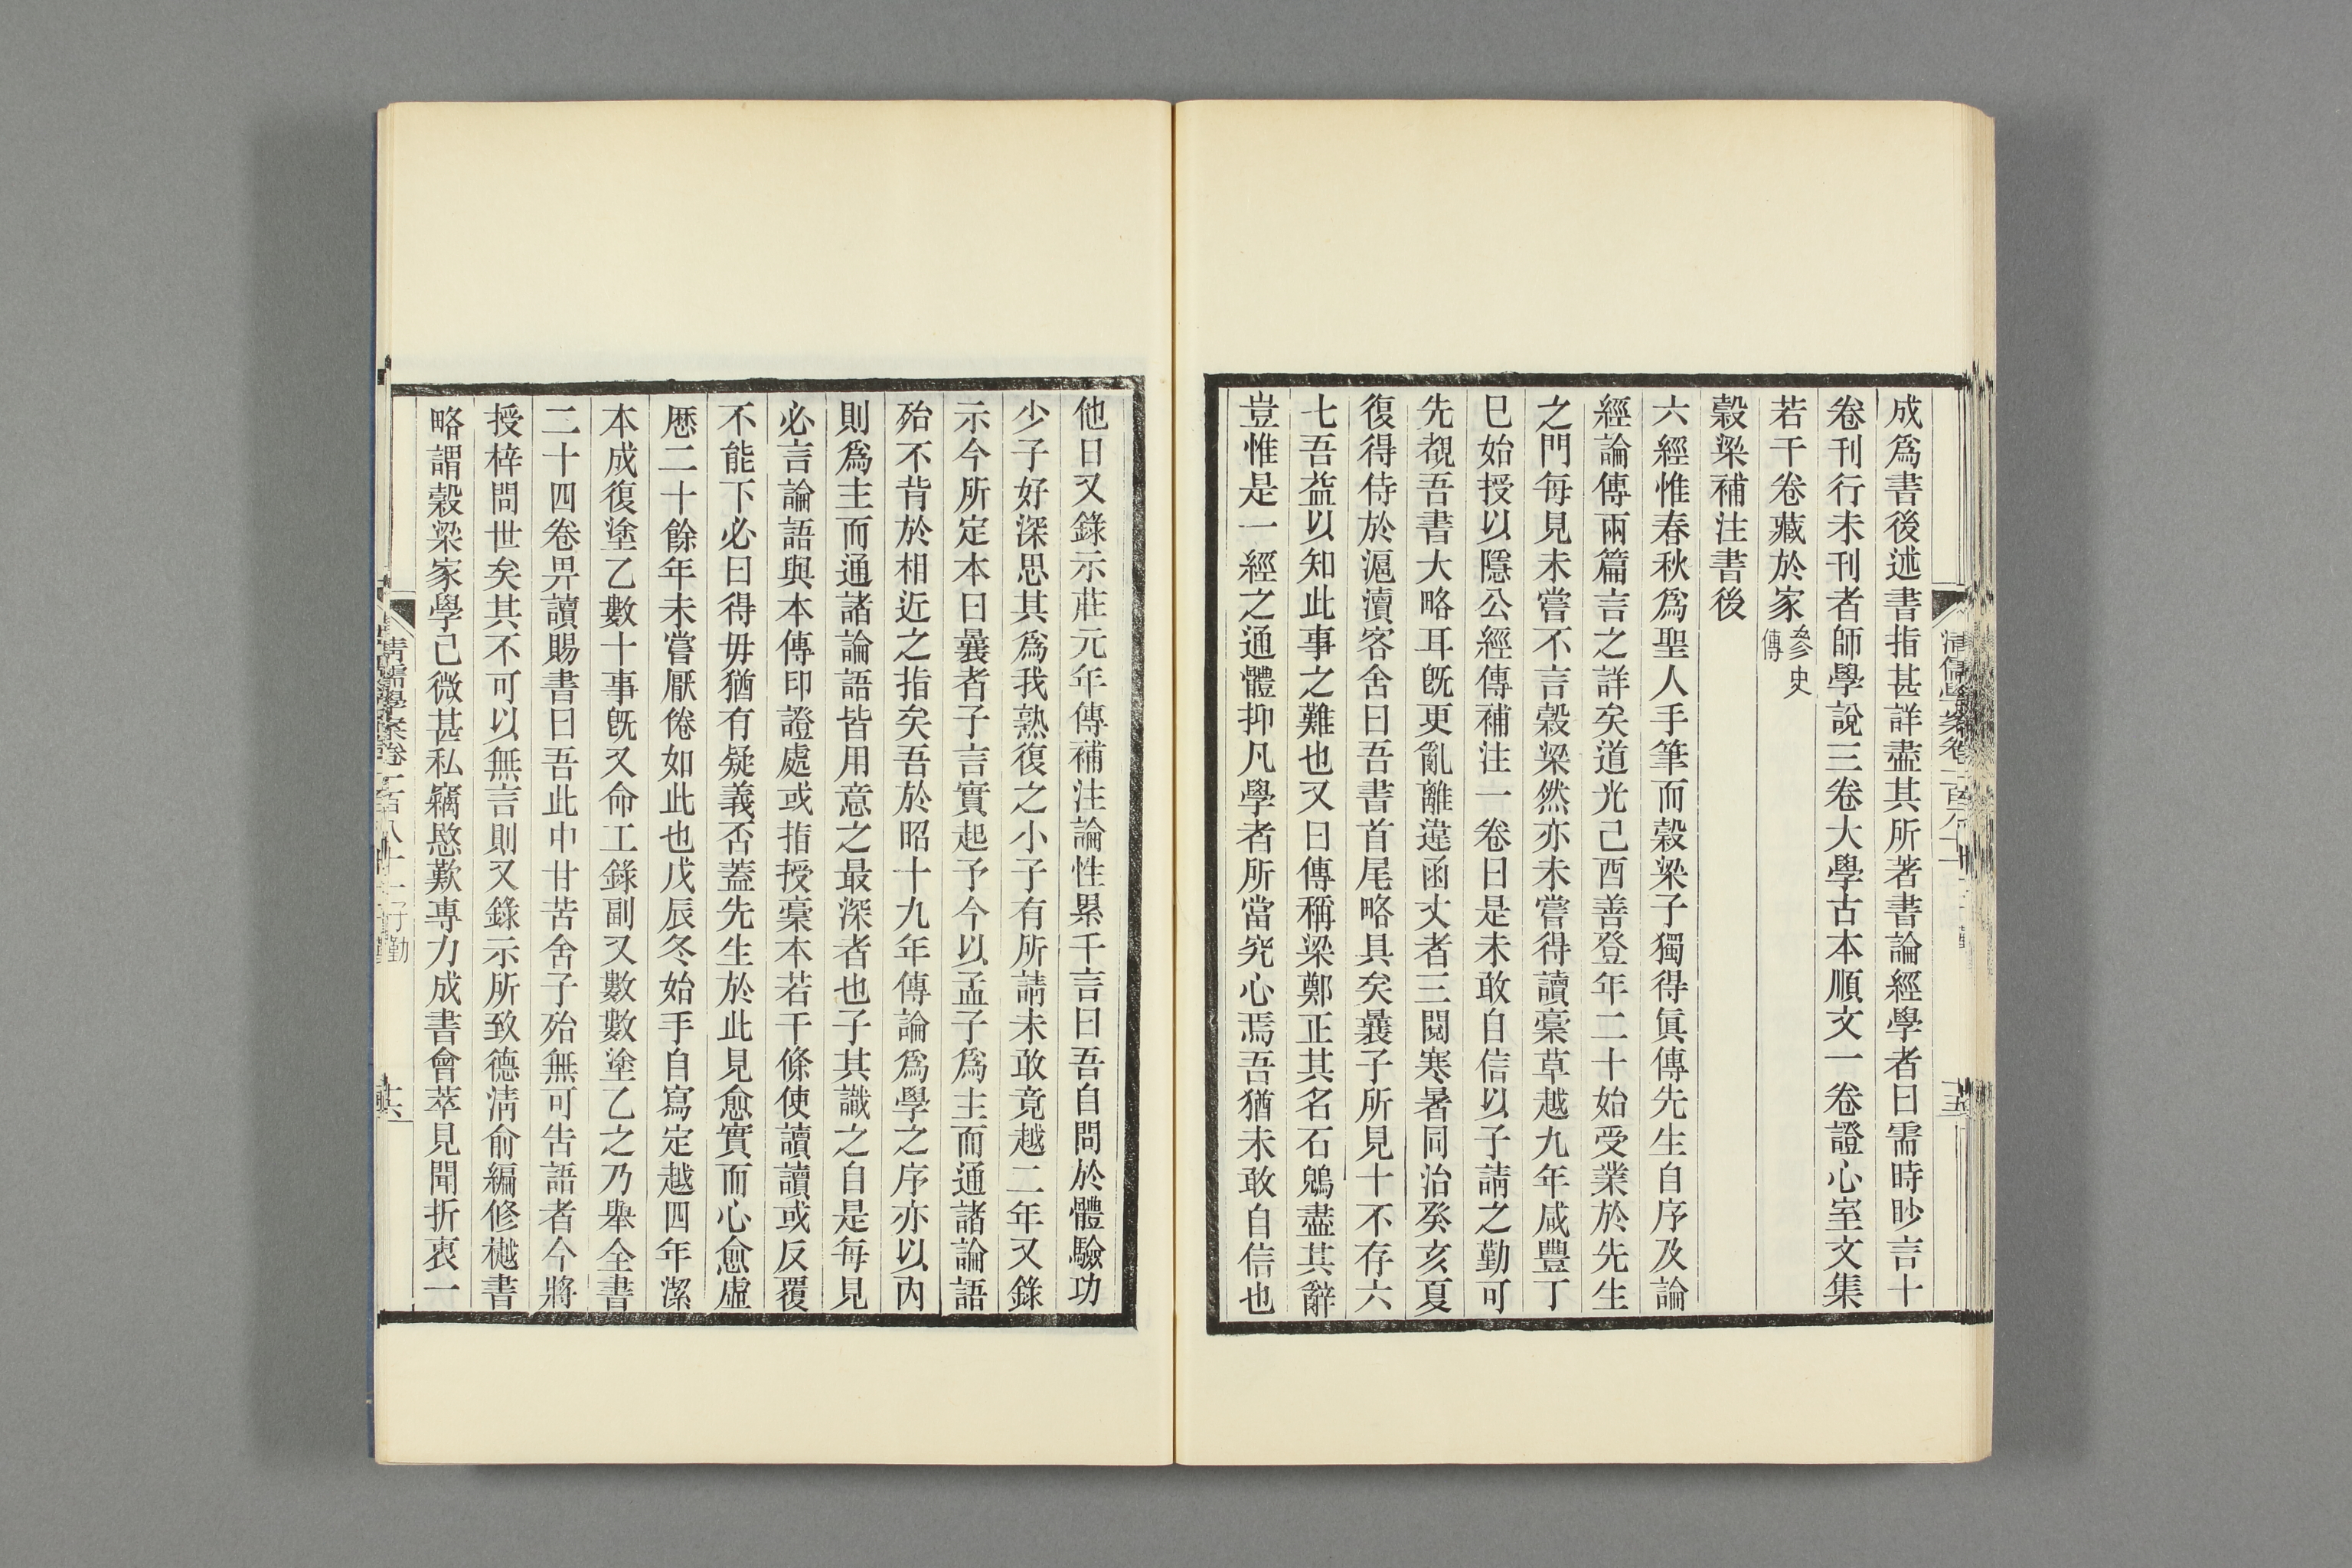 成爲書後述書指甚詳盡其所著書論經學者曰需時眇言十
卷刊行未刊者師學說三卷大學古本順文一卷證心室文集
若干卷藏於家參史傳
穀梁補注書後
六經惟春秋爲聖人手筆而穀梁子獨得眞傳先生自序及論
經論傳兩篇言之詳矣道光己酉善登年二十始受業於先生
之門每見未嘗不言穀梁然亦未嘗得讀稾草越九年咸豐丁
巳始授以隱公經傳補注一卷曰是未敢自信以子請之勤可
先覩吾書大略耳旣更亂離違函丈者三閱寒暑同治癸亥夏
復得侍於滬瀆客舍曰吾書首尾略具矣曩子所見十不存六
七吾益以知此事之難也又曰傳稱梁鄭正其名石鶂盡其辭
豈惟是一經之通體抑凡學者所當究心焉吾猶未敢自信也
他日又錄示莊元年傳補注論性累千言曰吾自問於體驗功
少子好深思其爲我熟復之小子有所請未敢竟越二年又錄
示今所定本曰曩者子言實起予今以孟子爲主而通諸論語
殆不背於相近之指矣吾於昭十九年傳論爲學之序亦以內
則爲主而通諸論語皆用意之最深者也子其識之自是每見
必言論語與本傳印證處或指授稾本若干條使讀讀或反覆
不能下必曰得毋猶有疑義否蓋先生於此見愈實而心愈虛
歷二十餘年未嘗厭倦如此也戊辰冬始手自寫定越四年潔
本成復塗乙數十事旣又命工錄副又數數塗乙之乃舉全書
二十四卷畀讀賜書曰吾此中甘苦舍子殆無可告語者今將
授梓問世矣其不可以無言則又錄示所致德淸俞編修樾書
略謂穀梁家學已微甚私竊愍歎專力成書會萃見聞折衷一
清儒學案卷一百八十一